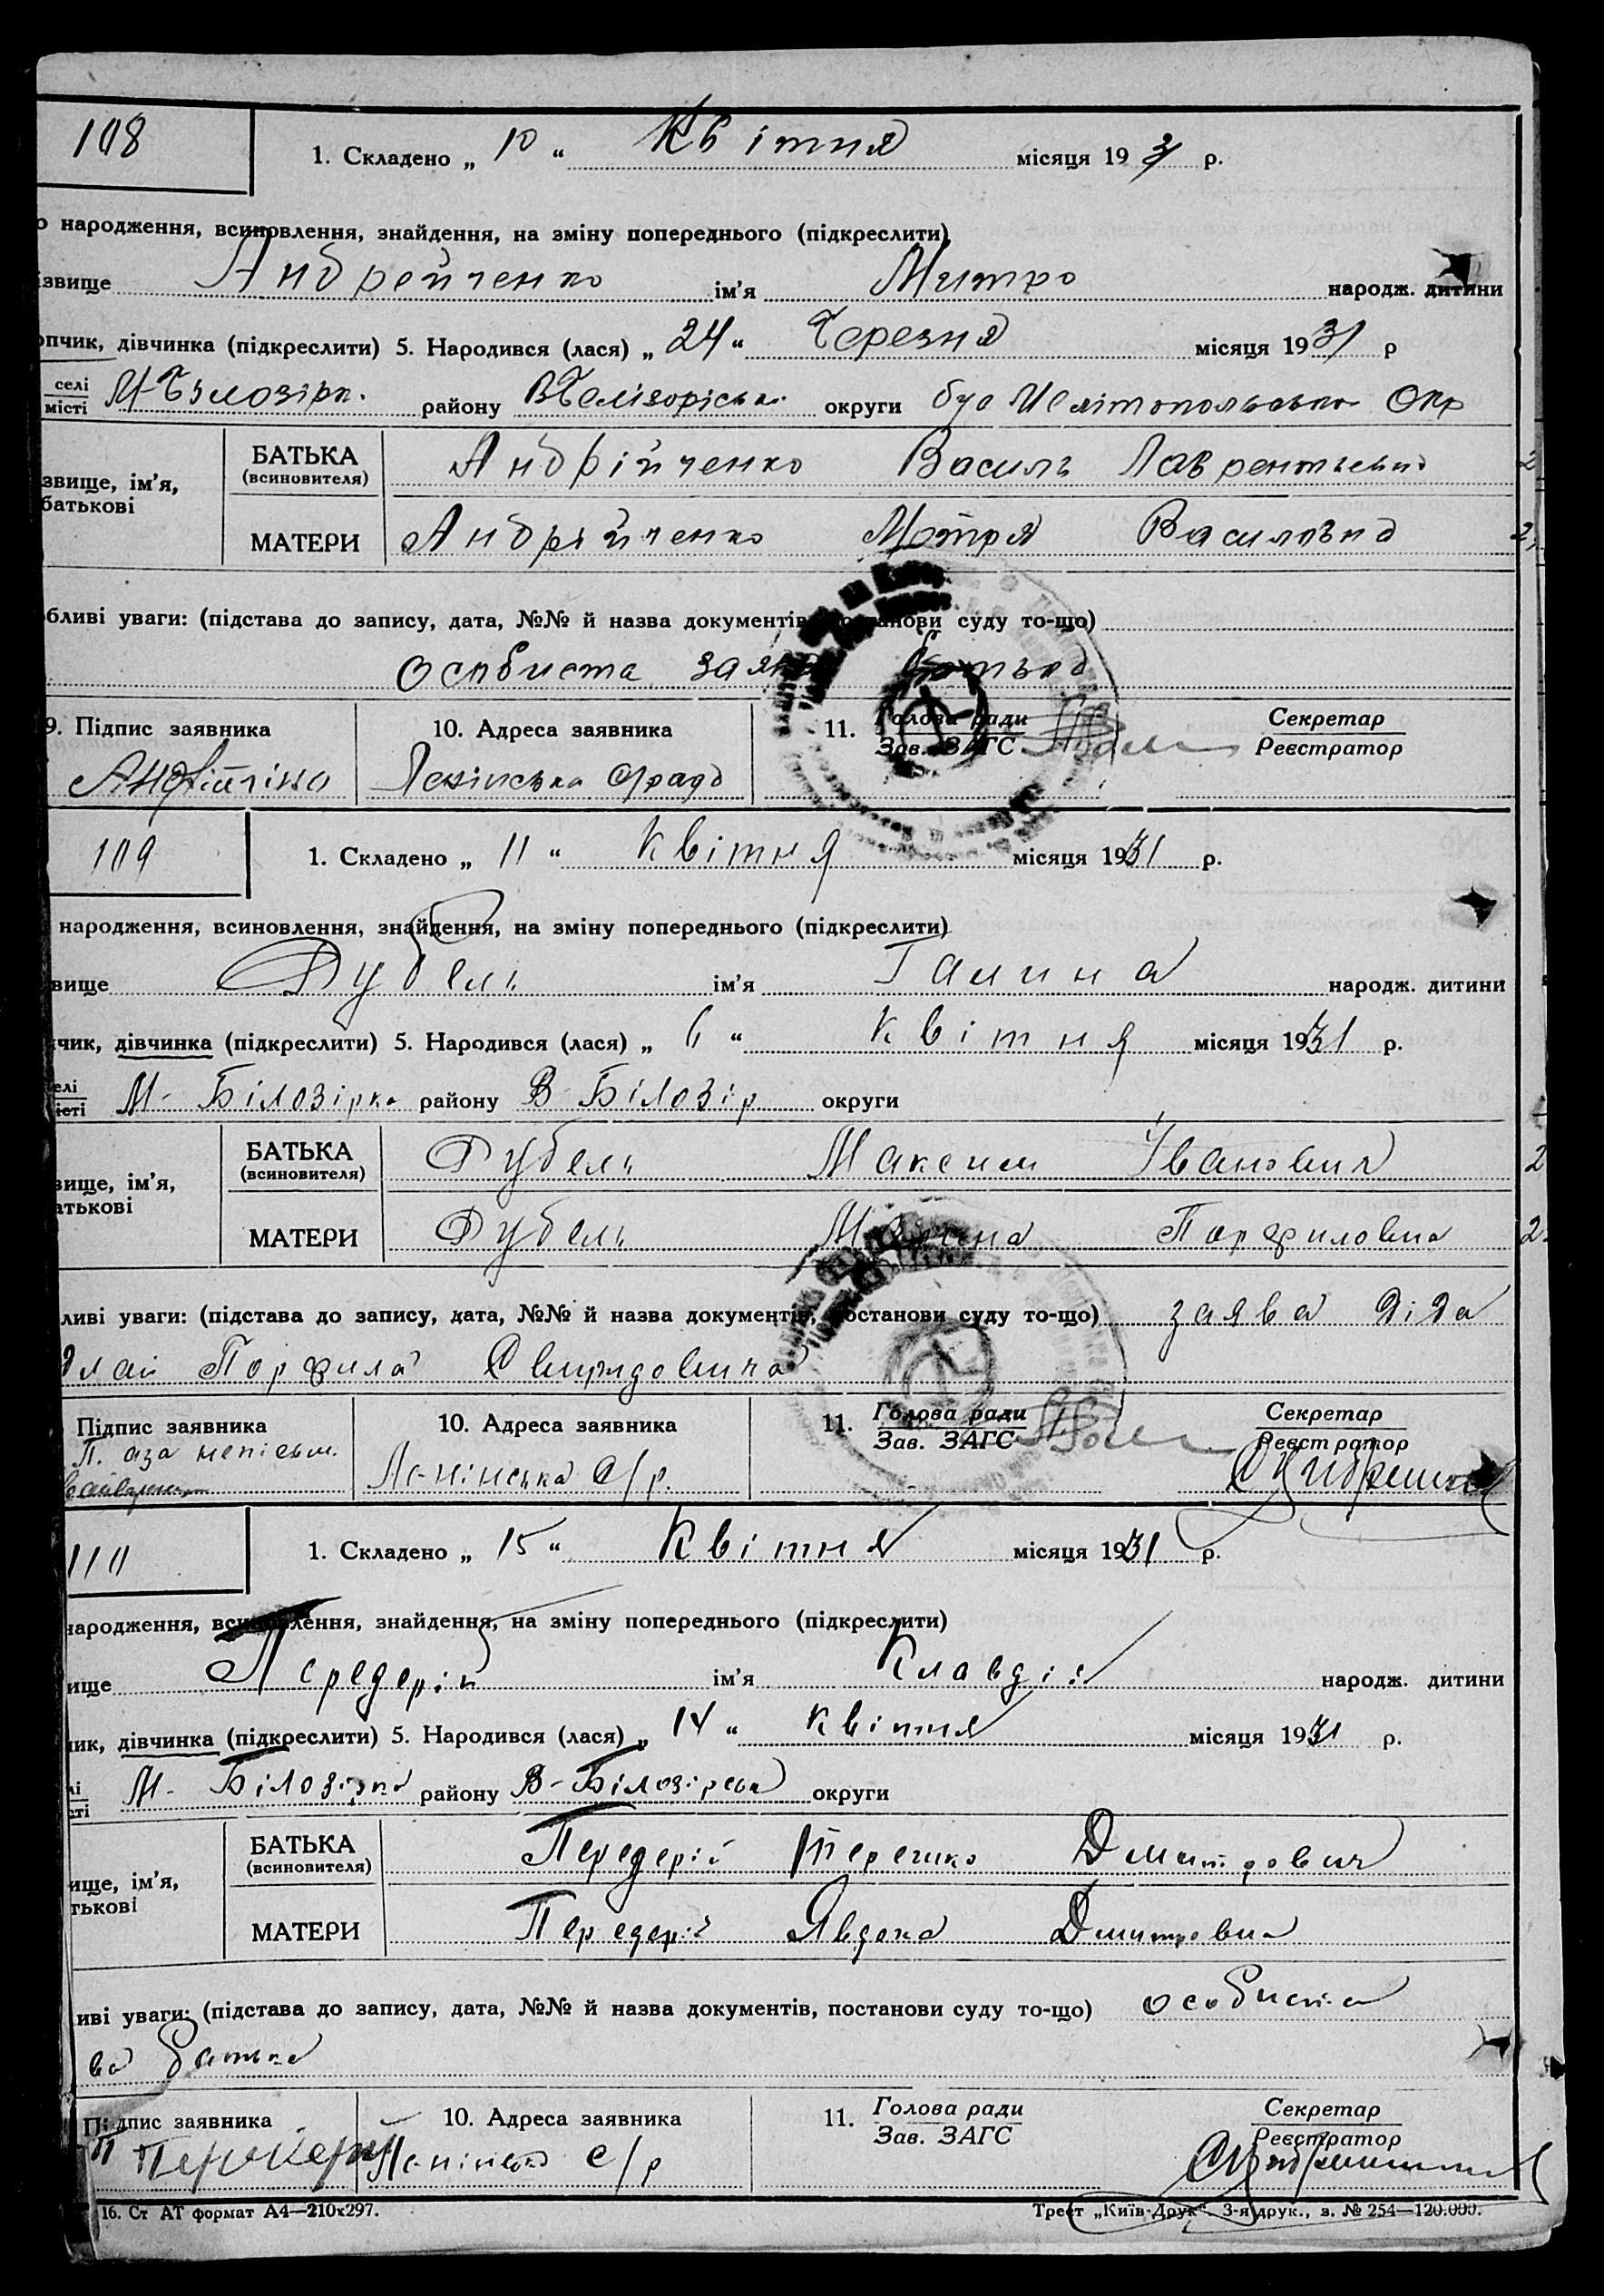 108
1. Складено „ 10 “ Квітня місяця 1931 р.
о народження, всиновлення, знайдення, на зміну попереднього (підкреслити)
ізвище Андрейченко ім’я Митро народж. дитини
опчик, дівчинка (підкреслити) 5. Народився (лася) „ 24 “ Черезня місяця 1931 р
селі
місті М-Білозірк. району округи був Мелітопольсько Окр
звище, ім’я,
батькові
БАТЬКА Андрійченко Василь Лаврентьевич
(всиновителя)
МАТЕРИ Андрійченко Мотря Василівна
бливі уваги: (підстава до запису, дата, №№ й назва документів, постанови суду то-що)
особиста заява батька
9. Підпис заявника 10. Адреса заявника 11. Голова ради Секретар
Зав. ЗАГС Реєстратор
Ленінська с/рада
109
1. Складено „ 11 “ Квітня місяця 1931 р.
народження, всиновлення, знайдення, на зміну попереднього (підкреслити)
вище Дубель ім’я Галина народж. дитини
чик, дівчинка (підкреслити) 5. Народився (лася) „ 6 “ Квітня місяця 1931 р.
елі
істі М- Білозірка району В-Білозір округи
вище, ім’я,
атькові
БАТЬКА Дубель Максим Іванович
(всиновителя)
МАТЕРИ Дубель Порфиловна
ливі уваги: (підстава до запису, дата, №№ й назва документів, постанови суду то-що) заява діда
Порфила Свиридовича
Підпис заявника 10. Адреса заявника 11. Голова ради Секретар
Зав. ЗАГС Реєстратор
Ленінська с/р.
110
1. Складено „ 15 “ Квітня місяця 1931 р.
народження, всиновлення, знайдення, на зміну попереднього (підкреслити)
ище Передерій ім’я Клавдія народж. дитини
ик, дівчинка (підкреслити) 5. Народився (лася) „ 14 “ Квітня місяця 1931 р.
лі
сті М- Білозірка району В-Білозірська округи
ище, ім’я,
тькові
БАТЬКА Передерій Дмитрович
(всиновителя)
МАТЕРИ Передерій Явдоха Дмитровна
иві уваги: (підстава до запису, дата, №№ й назва документів, постанови суду то-що) особиста
ва батька
Підпис заявника 10. Адреса заявника 11. Голова ради Секретар
Зав. ЗАГС Реєстратор
Передерій Ленінська с/р
16. Ст АТ формат А4—210х297. Трест „Київ-Друк“. 3-я друк., з. № 254—120.000.